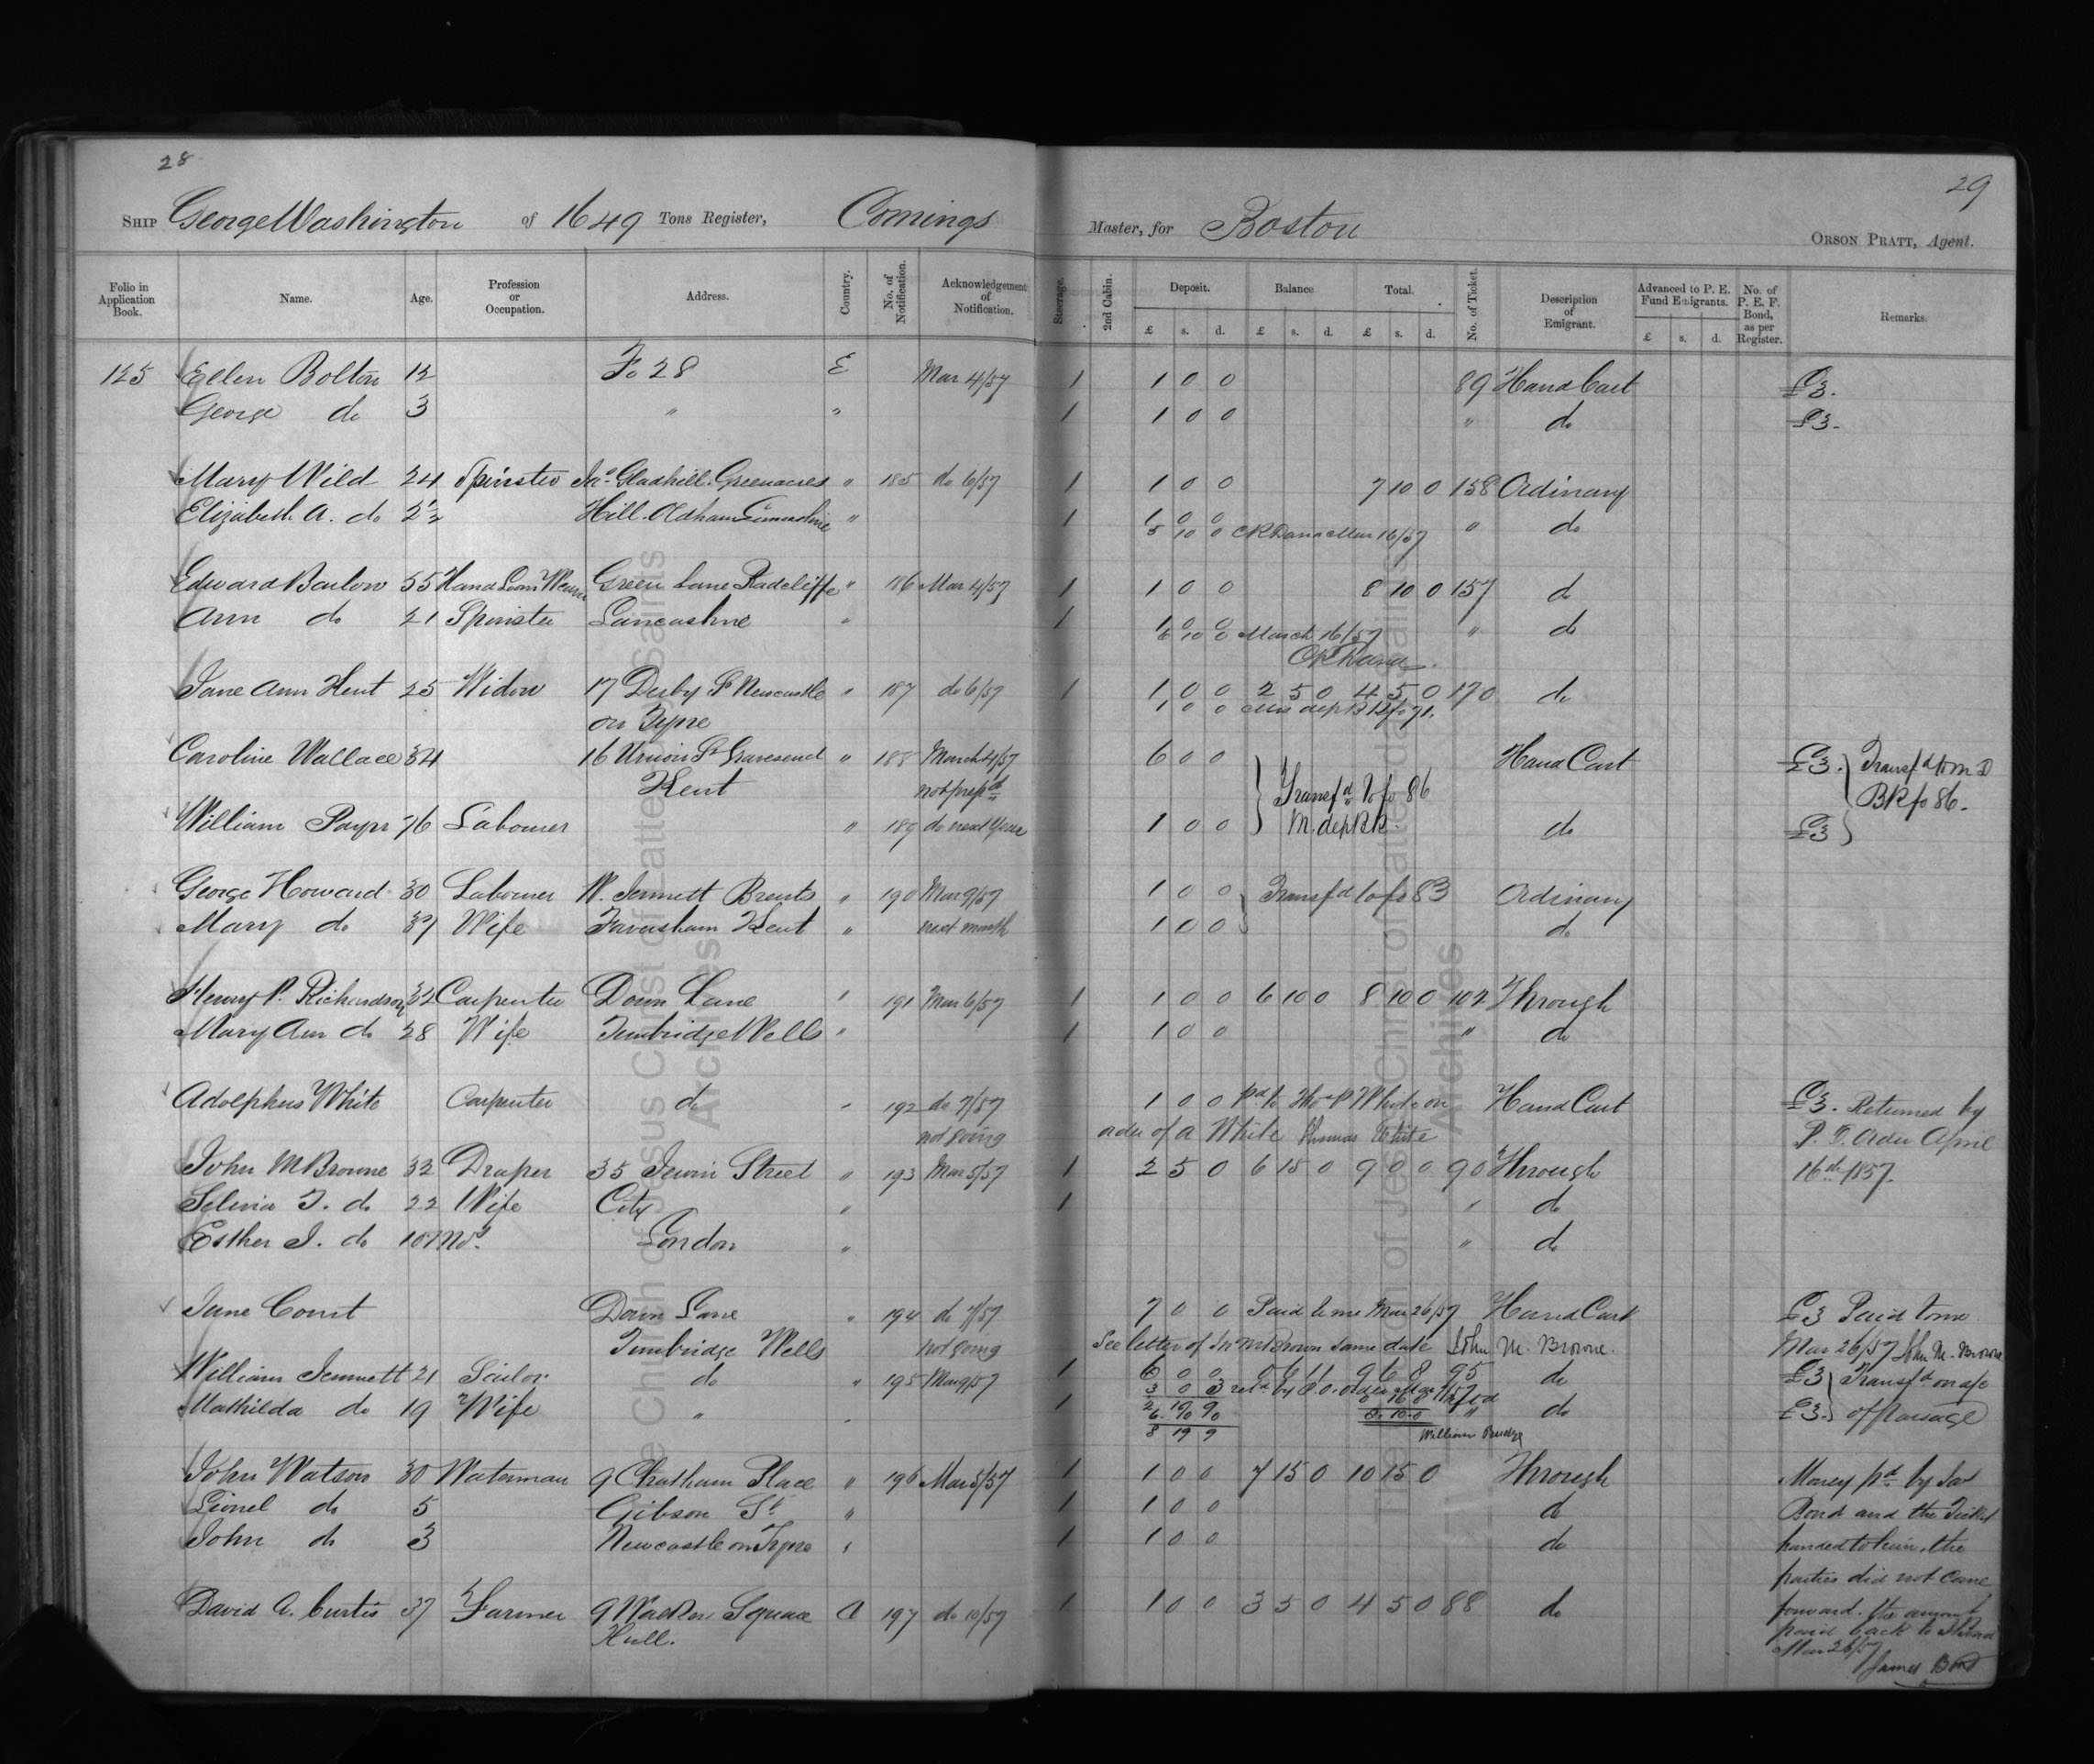 28
29
SHIP George Washington of 1649 Tons Register, Comings Master, for Boston ORSON PRATT, Agent.
Folio in Application Book. Name. Age. Profession or Occupation. Address. Country. No. of Notification. Acknowledgement of Notification. Steerage. 2nd Cabin. Deposit. £ s. d. Balance £ s. d. Total. £ s. d. No. of Ticket. Description of Emigrant. Advanced to P. E. Fund Emigrants. £ s. d. No. of P. E. F. Bond, as per Register. Remarks.
125 Ellen Bolton 12 Fo 28 E Mar 4/57 1 1 0 0 89 Hand Cart £3.
George do 3 " " 1 1 0 0 " do £3.
Mary Wild 24 Spinster Jas Gladhill. Greenacres " 185 do 6/57 1 1 0 0 7 10 0 158 Ordinary
Elizabeth A. do 2½ Hill. Oldham " 1 1 0 0 " do
5 10 0 Mar 16/57
Edward Barlow 55 Hand Loom Weaver Green Lane Radcliffe " 186 Mar 4/57 1 1 0 0 8 10 0 157 do
Ann do 21 Spinster Lancashire " 1 1 0 0 " do
6 10 0 March 16/57
Jane Ann Hent 25 Widow 17 Derby St Newcastle " 187 do 6/57 1 1 0 0 2 5 0 4 5 0 170 do
on Tyne 1 0 0 dep BK fo 71.
Caroline Wallace 34 16 Union St Gravesend " 188 March 4/57 6 0 0 Hand Cart £3. Transfd to M D
Kent not prepd Transfd to fo 86 BK fo 86.
William Payn 76 Labourer " 189 do next Year 1 0 0 M. dep BK. do £3
George Howard 30 Labourer W. Jemmett Brents " 190 Mar 9/57 1 0 0 Transfd to fo 83 Ordinary
Mary do 37 Wife Faversham Kent " next month 1 0 0 do
Henry P. Richardson 32 Carpenter Down Lane " 191 Mar 6/57 1 1 0 0 6 10 0 8 10 0 102 Through
Mary Ann do 28 Wife Tunbridge Wells " 1 1 0 0 " do
Adolphus White Carpenter do " 192 do 7/57 1 0 0 Pd to Thos P White on Hand Cart £3. Returned by
not going order of A White Thomas White P. O. Order April
John M Browne 32 Draper 35 Irwin Street " 193 Mar 5/57 1 2 5 0 6 15 0 9 0 0 90 Through 16th 1857.
Selina J. do 22 Wife City " 1 " do
Esther J. do 10 Mos. London " " do
Jane Court Down Lane " 194 do 7/57 7 0 0 Paid to me Mar 26/57 Hand Cart £3 Paid to me
Tunbridge Wells not going See letter of Jn M Brown same date John M. Browne. Mar 26/57 John M. Browne
William Jemmett 21 Sailor do " 195 Mar 9/57 1 6 0 0 0 6 11 9 6 8 95 do £3 Transfd on a/c
Mathilda do 19 Wife " " 1 " do £3. of Passage
8 19 9 William Budge
John Watson 30 Waterman 9 Chatham Place " 196 Mar 5/57 1 1 0 0 7 15 0 10 15 0 Through Money pd by Jas
Lionel do 5 Gibson St " 1 1 0 0 do Bond and the Ticket
John do 3 Newcastle on Tyne " 1 1 0 0 do handed to him, the
parties did not come
David A. Curtis 37 Farmer 9 Walker Square A 197 do 10/57 1 1 0 0 3 5 0 4 5 0 88 do forward. the amount
Hull. paid back to
Mar 26/57
James Bond